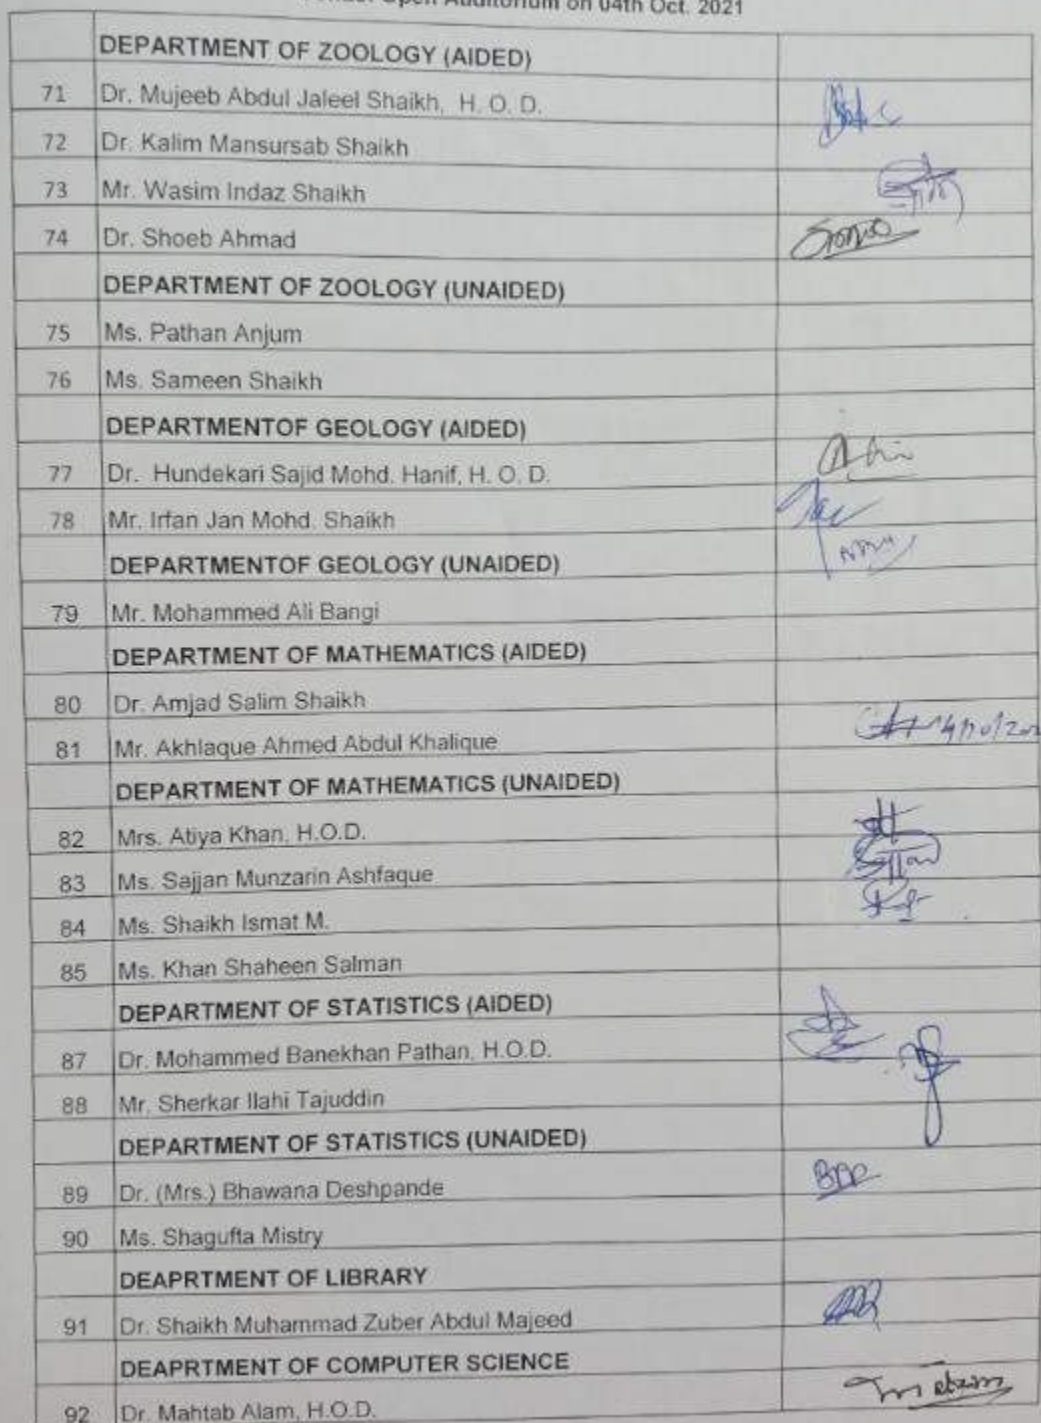 Open Auditorium on 04th Oct. 2021
DEPARTMENT OF ZOOLOGY (AIDED)
71 Dr. Mujeeb Abdul Jaleel Shaikh, H. O. D.
72 Dr. Kalim Mansursab Shaikh
73 Mr. Wasim Indaz Shaikh
74 Dr. Shoeb Ahmad
DEPARTMENT OF ZOOLOGY (UNAIDED)
75 Ms. Pathan Anjum
76 Ms. Sameen Shaikh
DEPARTMENTOF GEOLOGY (AIDED)
77 Dr. Hundekari Sajid Mohd. Hanif, H. O. D.
78 Mr. Irfan Jan Mohd. Shaikh
DEPARTMENTOF GEOLOGY (UNAIDED)
79 Mr. Mohammed Ali Bangi
DEPARTMENT OF MATHEMATICS (AIDED)
80 Dr. Amjad Salim Shaikh
81 Mr. Akhlaque Ahmed Abdul Khalique
DEPARTMENT OF MATHEMATICS (UNAIDED)
82 Mrs. Atiya Khan, H.O.D.
83 Ms. Sajjan Munzarin Ashfaque
84 Ms. Shaikh Ismat M.
85 Ms. Khan Shaheen Salman
DEPARTMENT OF STATISTICS (AIDED)
87 Dr. Mohammed Banekhan Pathan, H.O.D.
88 Mr. Sherkar Ilahi Tajuddin
DEPARTMENT OF STATISTICS (UNAIDED)
89 Dr. (Mrs.) Bhawana Deshpande
90 Ms. Shagufta Mistry
DEAPRTMENT OF LIBRARY
91 Dr. Shaikh Muhammad Zuber Abdul Majeed
DEAPRTMENT OF COMPUTER SCIENCE
92 Dr. Mahtab Alam, H.O.D.